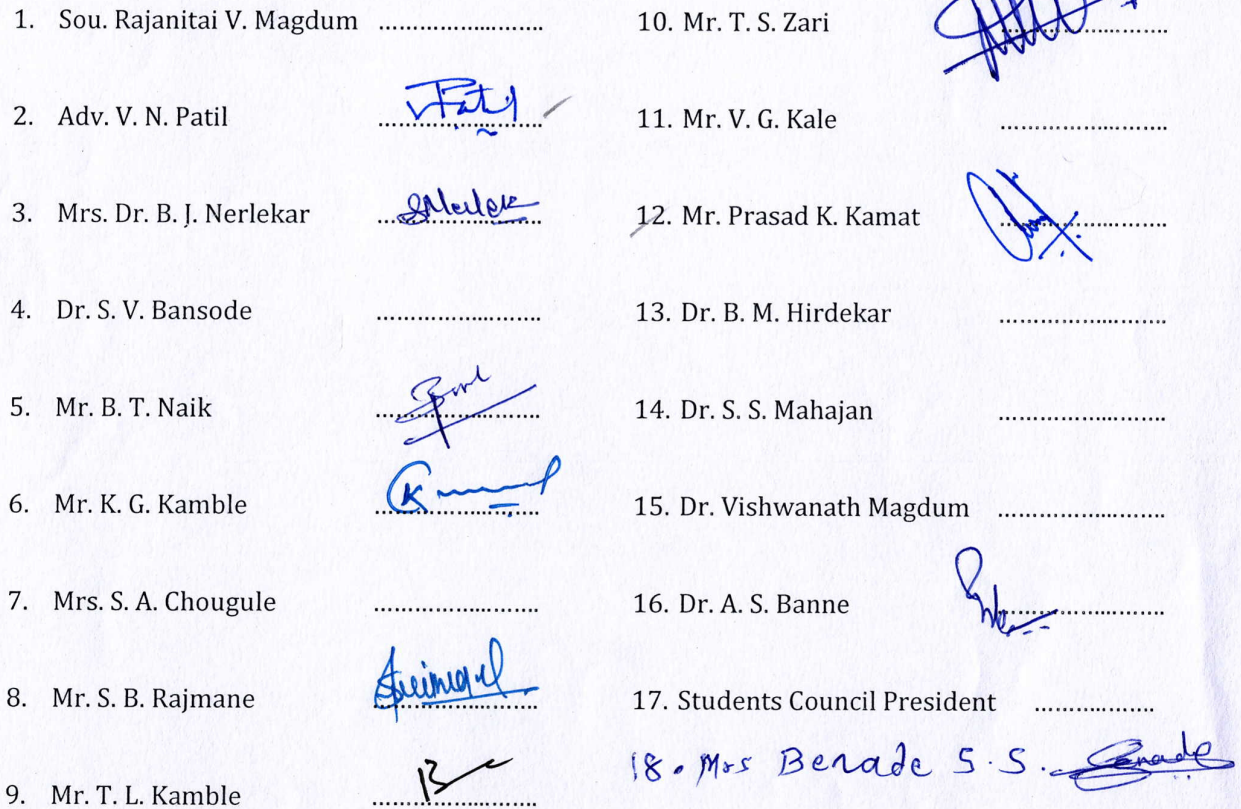 1. Sou. Rajanitai V. Magdum ........................
2. Adv. V. N. Patil ........................
3. Mrs. Dr. B. J. Nerlekar ........................
4. Dr. S. V. Bansode ........................
5. Mr. B. T. Naik ........................
6. Mr. K. G. Kamble ........................
7. Mrs. S. A. Chougule ........................
8. Mr. S. B. Rajmane ........................
9. Mr. T. L. Kamble ........................
10. Mr. T. S. Zari ........................
11. Mr. V. G. Kale ........................
12. Mr. Prasad K. Kamat ........................
13. Dr. B. M. Hirdekar ........................
14. Dr. S. S. Mahajan ........................
15. Dr. Vishwanath Magdum ........................
16. Dr. A. S. Banne ........................
17. Students Council President .................
18. Mrs Benade S. S.